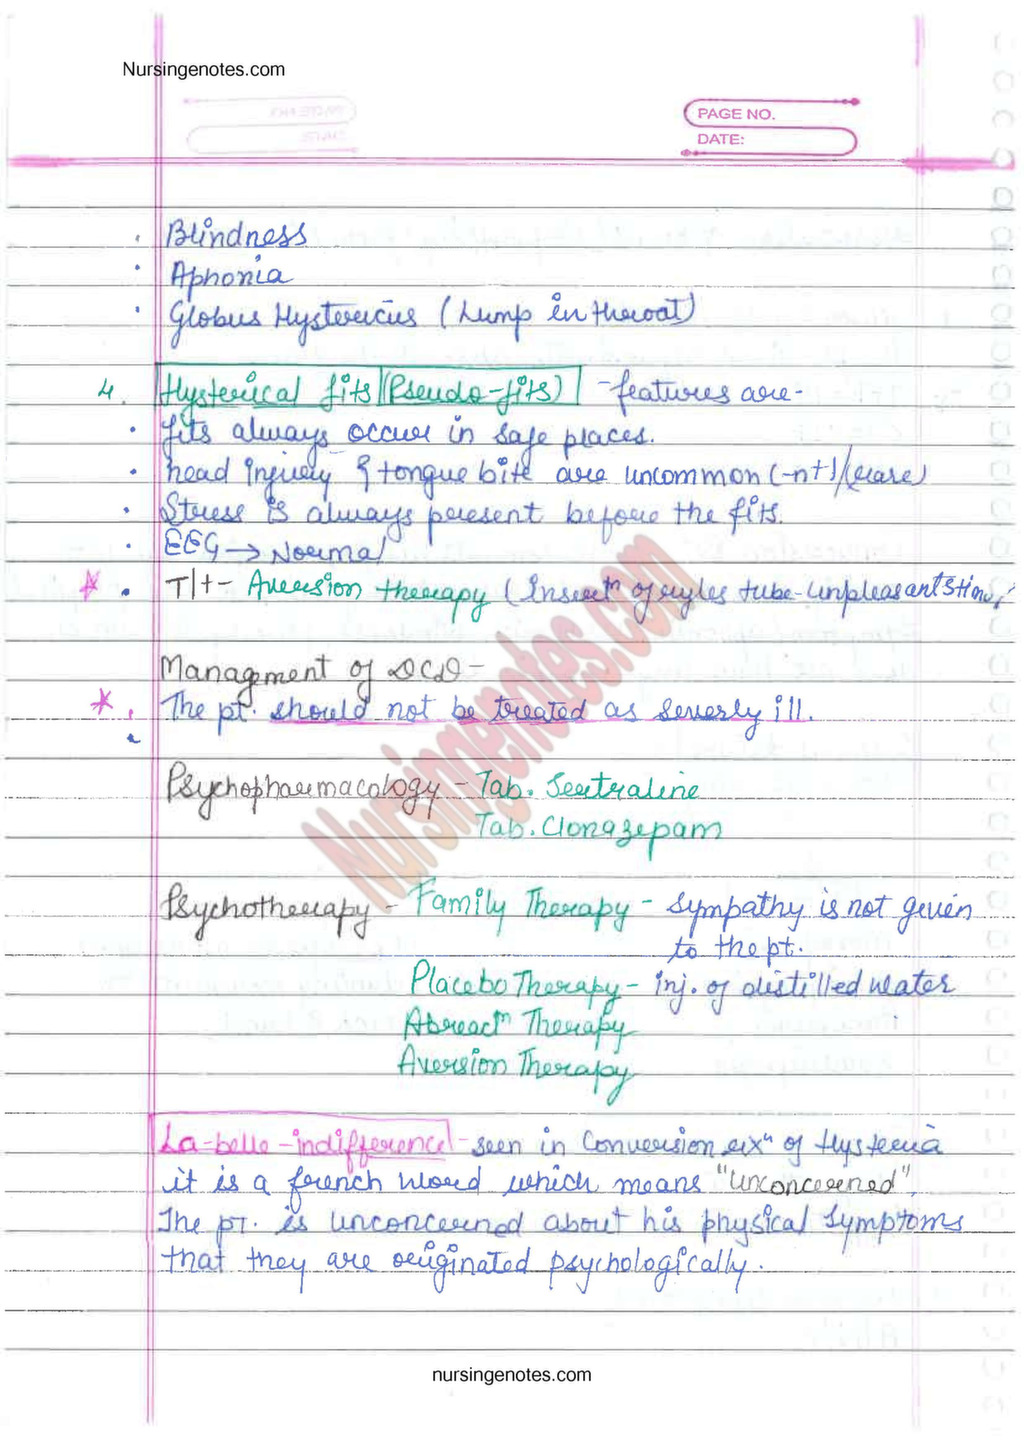 Nursingenotes.com
PAGE NO.
DATE:
· Blindness
· Aphonia
· Globus Hystericus (Lump in throat)
4. Hysterical fits (Pseudo-fits) - features are-
· fits always occur in safe places.
· head injury & tongue bite are uncommon (-nt)/(rare)
· Stress is always present before the fits.
· EEG → Normal
· T/t- Aversion therapy (Insertⁿ of ryles tube-unpleasant
Managment of DCD-
· The pt. should not be treated as severly ill.
·
Psychopharmacology - Tab. Sertraline
Tab. Clonazepam
Psychotherapy - Family Therapy - Sympathy is not given
to the pt.
Placebo Therapy - inj. of distilled water
Abreactⁿ Therapy
Aversion Therapy
La-belle-indifference - seen in Conversion rxⁿ of Hysteria
it is a french word which means "unconcerned".
The pt. is unconcerned about his physical symptoms
that they are originated psychologically.
Nursingenotes.com
nursingenotes.com